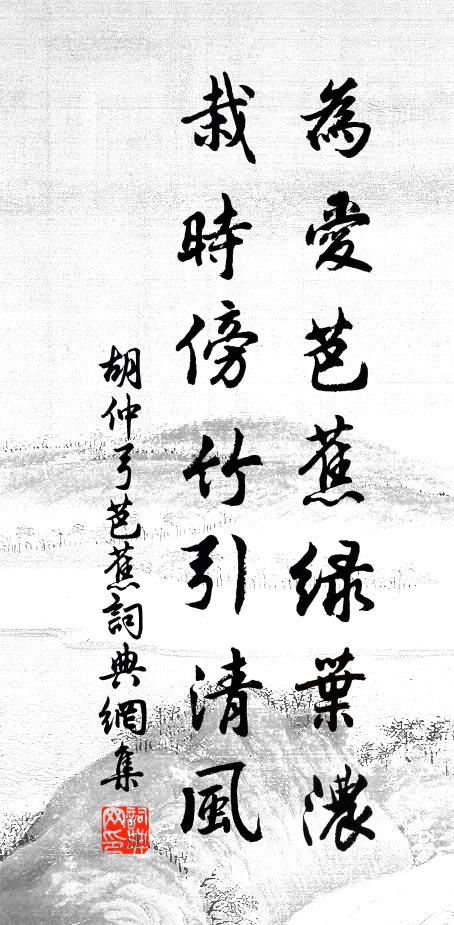 為愛芭蕉綠葉濃
栽時傍竹引清風
胡仲弓芭蕉詞典網集